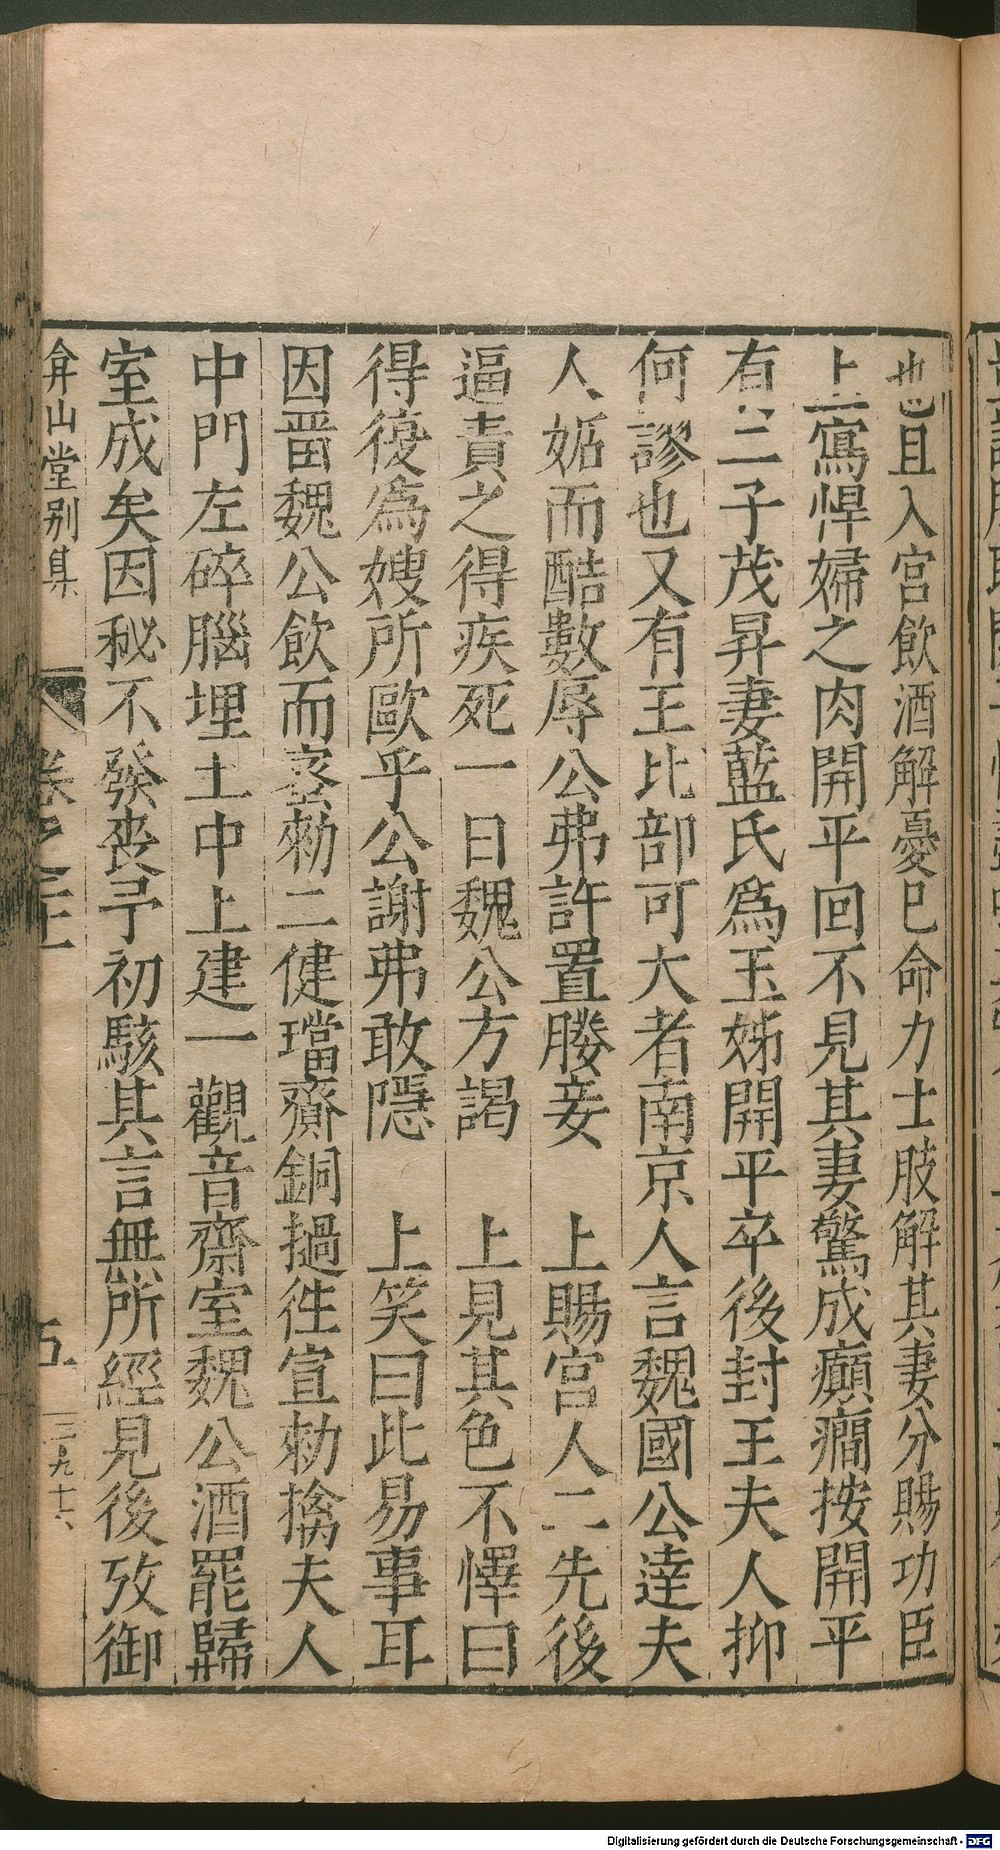 也且入宮飲酒解憂已命力士肢解其妻分賜功臣
上寫悍婦之肉開平回不見其妻驚成癲癇按開平
有三子茂昇妻藍氏爲玉姊開平卒後封王夫人抑
何謬也又有王比部可大者南京人言魏國公達夫
人妬而酷數辱公弗許置媵妾　上賜宮人二先後
逼責之得疾死一日魏公方謁　上見其色不懌曰
得復爲嫂所歐乎公謝弗敢隱　上笑曰此易事耳
因畱魏公飲而密勑二健璫齎銅撾徃宣勑擒夫人
中門左碎腦埋土中上建一觀音齋室魏公酒罷歸
室成矣因秘不發喪予初駭其言無所經見後攷御
弇山堂别集
卷之二十
五
三九十六
Digitalisierung gefördert durch die Deutsche Forschungsgemeinschaft - DFG